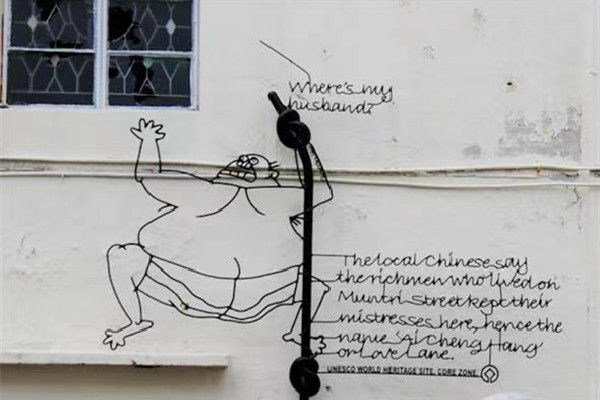 Where's my
husband?
The local Chinese say
the rich men who lived on
Muntri Street kept their
mistresses here, hence the
name 'Ai Cheng Hang'
or Love Lane.
UNESCO WORLD HERITAGE SITE. CORE ZONE